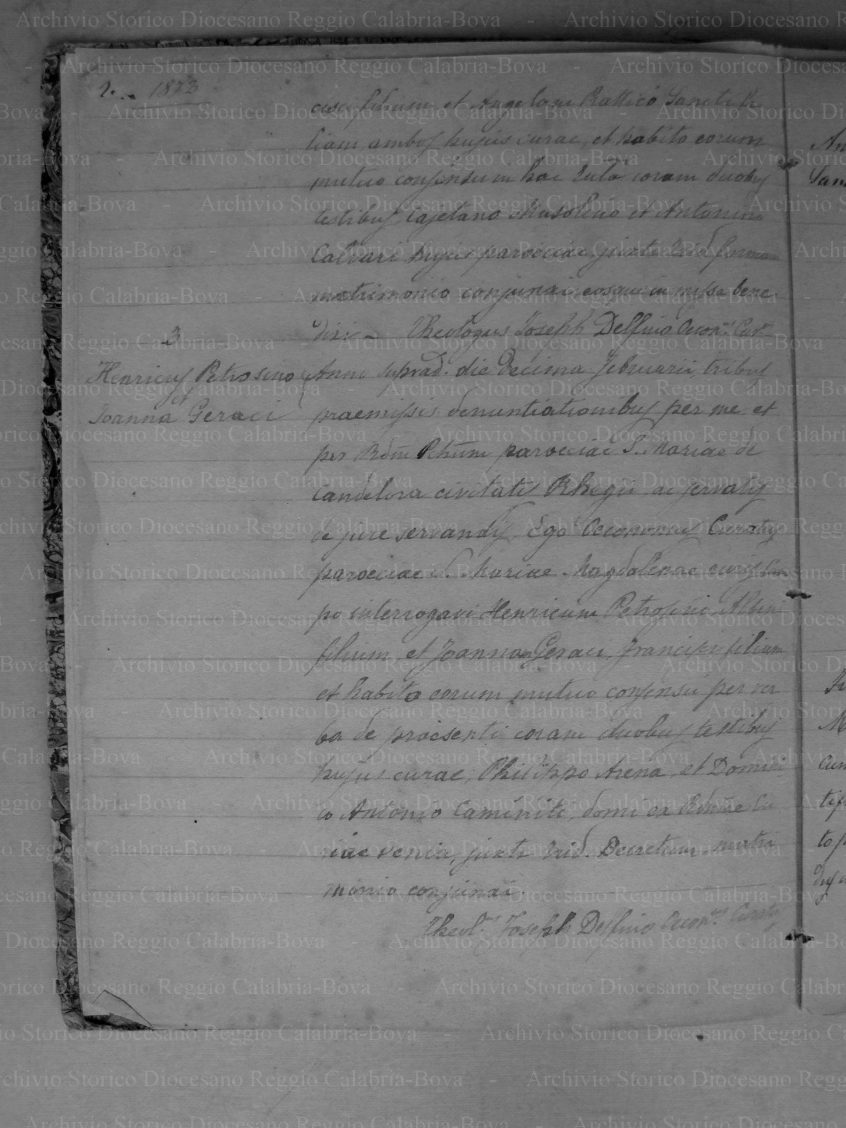 2. 1873
cisci filium et Angelam Rattico Sancti fi
liam ambos hujus curae, et habito eorum
mutuo consensu in hac Aula coram duobus
testibus Cajetano Musolino et Antonino
Calvari hujus paroeciae, juxta Trid. formam
matrimonio conjunxi eosque in missa bene
dixi Theologus Joseph Delfino Oecon. Cur.
3
Henricus Petrosino
et
Joanna Geraci
Anno suprad. die decima Februarii, tribus
praemissis denuntiationibus per me, et
per Rdum Pchum paroeciae S. Mariae de
Candelora civitatis Rhegii ac servatis
de jure servandis. Ego Oeconomus Curatus
paroeciae S. Mariae Magdalenae
po interrogavi Henricum Petrosino Albin
filium, et Joannam Geraci, Francisci filiam
et habito eorum mutuo consensu per ver
ba de praesenti coram duobus testibus
hujus curae, Philippo Arena, et Domini
co Antonio Caminiti, domi ex Rdmae Cu
riae venia, juxta Trid. Decretum matri
monio conjunxi.
Theol. Joseph Delfino Oecon. Curatus
Archivio Storico Diocesano Reggio Calabria-Bova